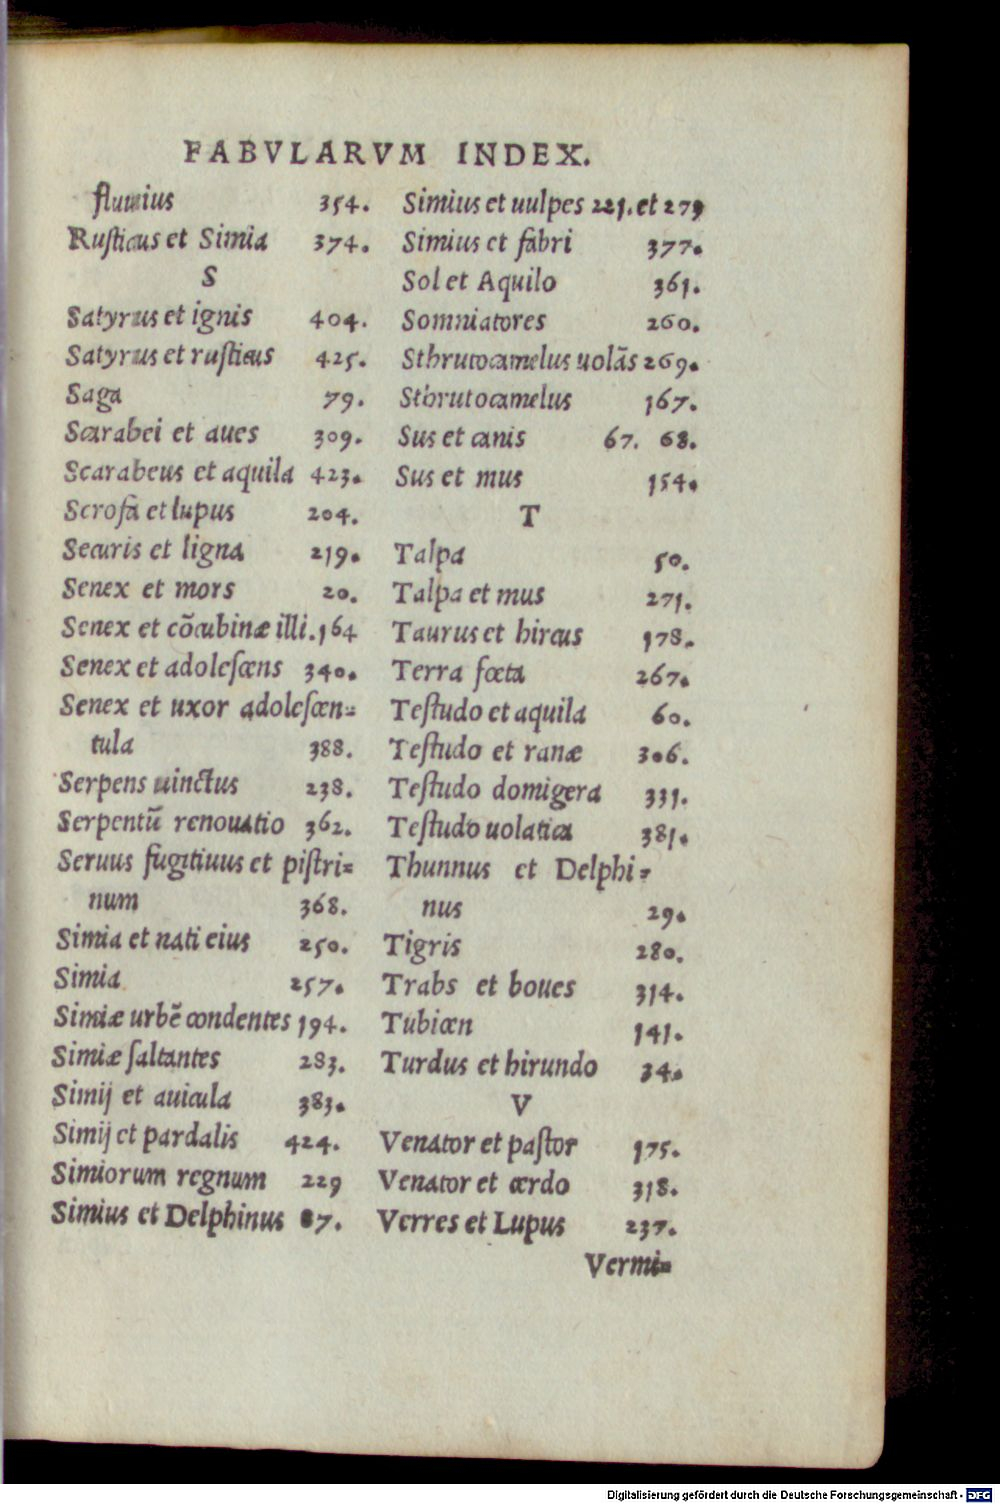 FABVLARVM INDEX.
fluuius 354.
Rusticus et Simia 374.
S
Satyrus et ignis 404.
Satyrus et rusticus 425.
Saga 79.
Scarabei et aues 309.
Scarabeus et aquila 423.
Scrofa et lupus 204.
Securis et ligna 219.
Senex et mors 20.
Senex et cõcubinæ illi. 164
Senex et adolescens 340.
Senex et uxor adolescen=
tula 388.
Serpens uinctus 238.
Serpentũ renouatio 362.
Seruus fugitiuus et pistri=
num 368.
Simia et nati eius 250.
Simia 257.
Simiæ urbẽ condentes 194.
Simiæ saltantes 283.
Simij et auicula 383.
Simij et pardalis 424.
Simiorum regnum 229
Simius et Delphinus 87.
Simius et uulpes 221. et 279
Simius et fabri 377.
Sol et Aquilo 361.
Somniatores 260.
Sthrutocamelus uolãs 269.
Sthrutocamelus 167.
Sus et canis 67. 68.
Sus et mus 154.
T
Talpa 50.
Talpa et mus 271.
Taurus et hircus 178.
Terra fœta 267.
Testudo et aquila 60.
Testudo et ranæ 306.
Testudo domigera 331.
Testudo uolatica 381.
Thunnus et Delphi=
nus 29.
Tigris 280.
Trabs et boues 314.
Tubicen 141.
Turdus et hirundo 34.
V
Venator et pastor 175.
Venator et cerdo 318.
Verres et Lupus 237.
Vermi=
Digitalisierung gefördert durch die Deutsche Forschungsgemeinschaft - DFG